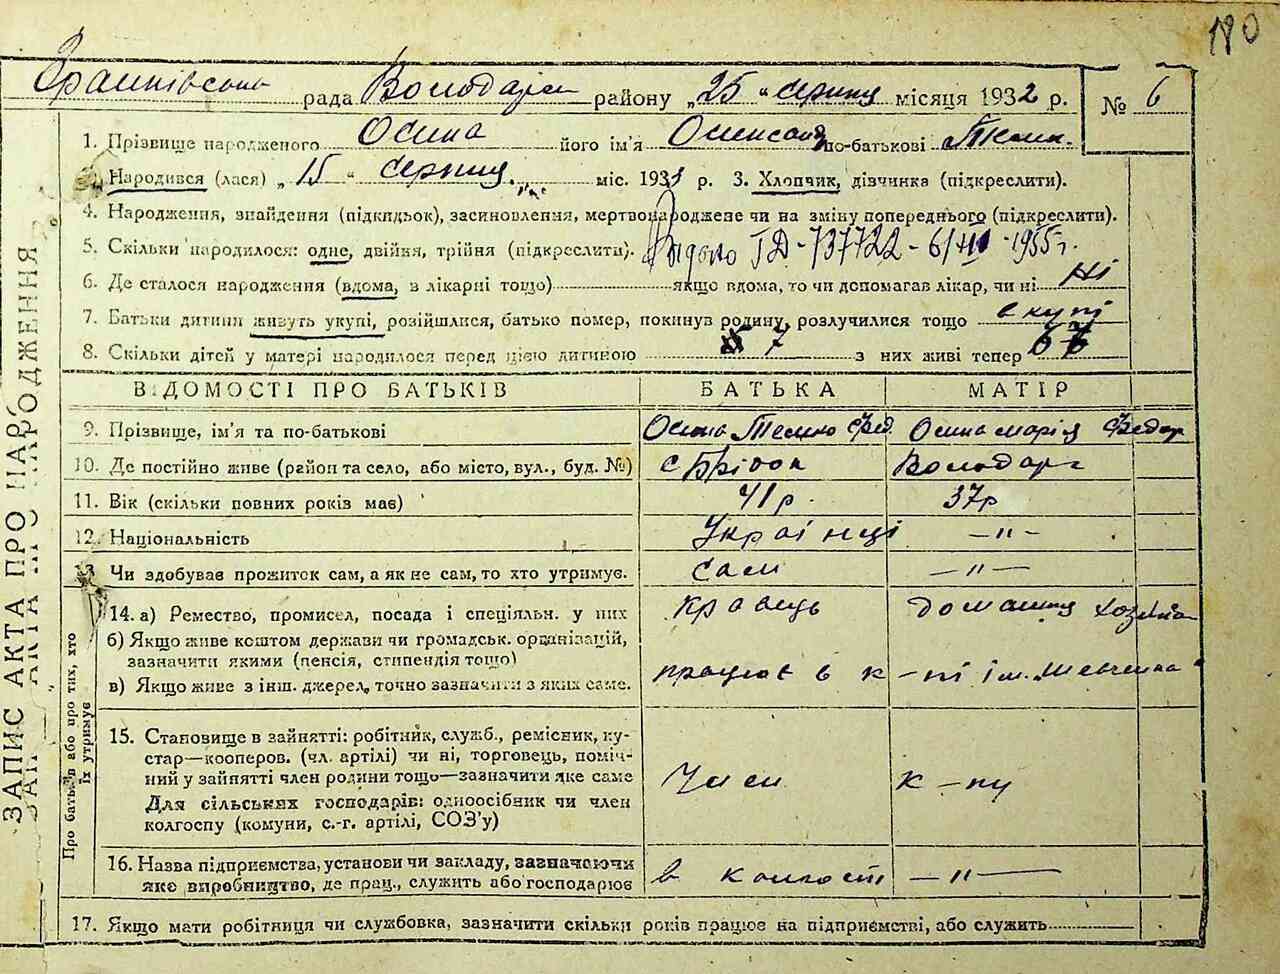 190
рада Володарськ району „25“ серпня місяця 1932 р. № 6
1. Прізвище народженого Осипа його ім'я по-батькові
Народився (лася) „15“ серпня міс. 193 р. 3. Хлопчик, дівчинка (підкреслити).
4. Народження, знайдення (підкидьок), засиновлення, мертвонароджене чи на зміну попереднього (підкреслити).
5. Скільки народилося: одне, двійня, трійня (підкреслити). Видано ІД-737722 - 1955 г.
6. Де сталося народження (вдома, в лікарні тощо) якщо вдома, то чи допомагав лікар, чи ні Ні
7. Батьки дитини живуть укупі, розійшлися, батько помер, покинув родину, розлучилися тощо вкупі
8. Скільки дітей у матері народилося перед цією дитиною 7 з них живі тепер 6
ВІДОМОСТІ ПРО БАТЬКІВ БАТЬКА МАТІР
9. Прізвище, ім'я та по-батькові Осипа Фед. Осипа Марія Федор
10. Де постійно живе (район та село, або місто, вул., буд. №) с Володарк
11. Вік (скільки повних років має) 41 р. 37 р
12. Національність Українці —„—
13 Чи здобував прожиток сам, а як не сам, то хто утримує. сам —„—
14. а) Ремество, промисел, посада і спеціяльн. у них кравець домашня хозяйка
б) Якщо живе коштом держави чи громадськ. організацій,
зазначити якими (пенсія, стипендія тощо)
працює в к-пі ім. Шевченка
в) Якщо живе з інш. джерел, точно зазначити з яких саме.
15. Становище в зайнятті: робітник, служб., ремісник, ку-
стар—кооперов. (чл. артілі) чи ні, торговець, поміч-
ний у зайнятті член родини тощо—зазначити яке саме
Члени к-пу
Для сільських господарів: одноосібник чи член
колгоспу (комуни, с.-г. артілі, СОЗ'у)
16. Назва підприємства, установи чи закладу, зазначаючи
яке виробництво, де прац., служить або господарює
в колгосп —„—
17. Якщо мати робітниця чи службовка, зазначити скільки років працює на підприємстві, або служить
ЗАПИС АКТА ПРО НАРОДЖЕННЯ
Про батьків або про тих, хто
їх утримує